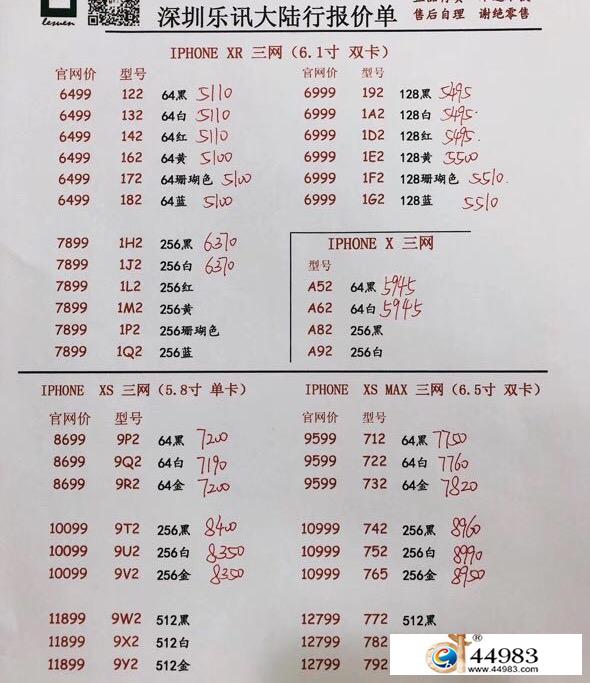 lewen
深圳乐讯大陆行报价单
售后自理 谢绝零售
IPHONE XR 三网（6.1寸 双卡）
官网价 型号 官网价 型号
6499 122 64黑 5110 6999 192 128黑 5495
6499 132 64白 5110 6999 1A2 128白 5495
6499 142 64红 5110 6999 1D2 128红 5495
6499 162 64黄 5100 6999 1E2 128黄 5500
6499 172 64珊瑚色 5100 6999 1F2 128珊瑚色 5510
6499 182 64蓝 5100 6999 1G2 128蓝 5510
7899 1H2 256黑 6370
7899 1J2 256白 6370
7899 1L2 256红
7899 1M2 256黄
7899 1P2 256珊瑚色
7899 1Q2 256蓝
IPHONE X 三网
型号
A52 64黑 5945
A62 64白 5945
A82 256黑
A92 256白
IPHONE XS 三网（5.8寸 单卡）
官网价 型号
8699 9P2 64黑 7200
8699 9Q2 64白 7190
8699 9R2 64金 7200
10099 9T2 256黑 8400
10099 9U2 256白 8350
10099 9V2 256金 8350
11899 9W2 512黑
11899 9X2 512白
11899 9Y2 512金
IPHONE XS MAX 三网（6.5寸 双卡）
官网价 型号
9599 712 64黑 7750
9599 722 64白 7760
9599 732 64金 7820
10999 742 256黑 8960
10999 752 256白 8990
10999 765 256金 8950
12799 772 512黑
12799 782
12799 792
44983
www.44983.com